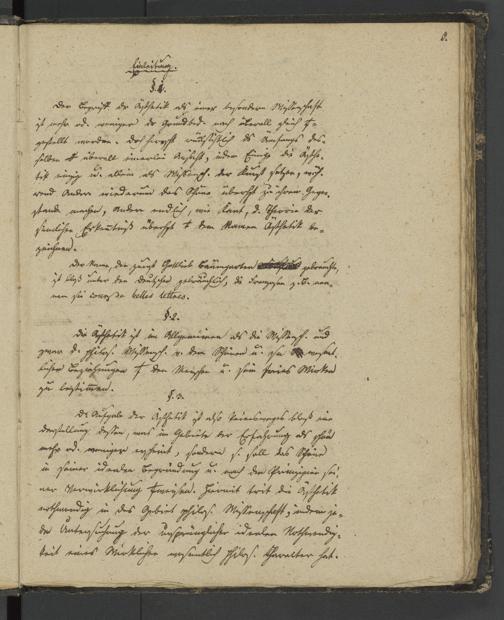 8.
Einleitung.
§.1.
Der Begriff der Ästhetik als einer besondern Wissenschaft
ist mehr od. weniger der Grundbed. nach überall gleich
gestellt worden. Doch herrscht rücksichtlich des Umfangs des-
selben überall einerlei Ansicht, indem Einige die Ästhe-
tik einzig u. allein als Wissensch. der Kunst setzen, wäh-
rend Andere wiederum das Schöne überhpt zu ihrem Gegen-
stande machen, Andere endlich, wie Kant, d. Theorie der
sinnlichen Erkenntniß überhpt den Namen Ästhetik be-
zeichnen.
Der Name, den zuerst Gottlieb Baumgarten gebrauchte,
ist bloß unter den Deutschen gebräuchlich, die Franzosen z.B. nen-
nen sie belles lettres.
§.2.
Die Ästhetik ist im Allgemeinen als die Wissensch. und
zwar d. philos. Wissensch. v. dem Schönen u. seinen wesent-
lichen Beziehungen den Menschen u. sein freies Wirken
zu bestimmen.
§.3.
Die Aufgabe der Ästhetik ist also keineswegs bloß eine
Darstellung dessen, was im Gebiete der Erfahrung als schön
mehr od. weniger erscheint, sondern s. soll das Schöne
in seiner idealen Begründung u. nach den Prinzipien sei-
ner Verwirklichung Hiermit tritt die Ästhetik
nothwendig in das Gebiet philos. Wissenschaft, indem je-
de Untersuchung der ursprünglichen idealen Nothwendig-
keit eines Wirklichen wesentlich philos. Charakter hat.